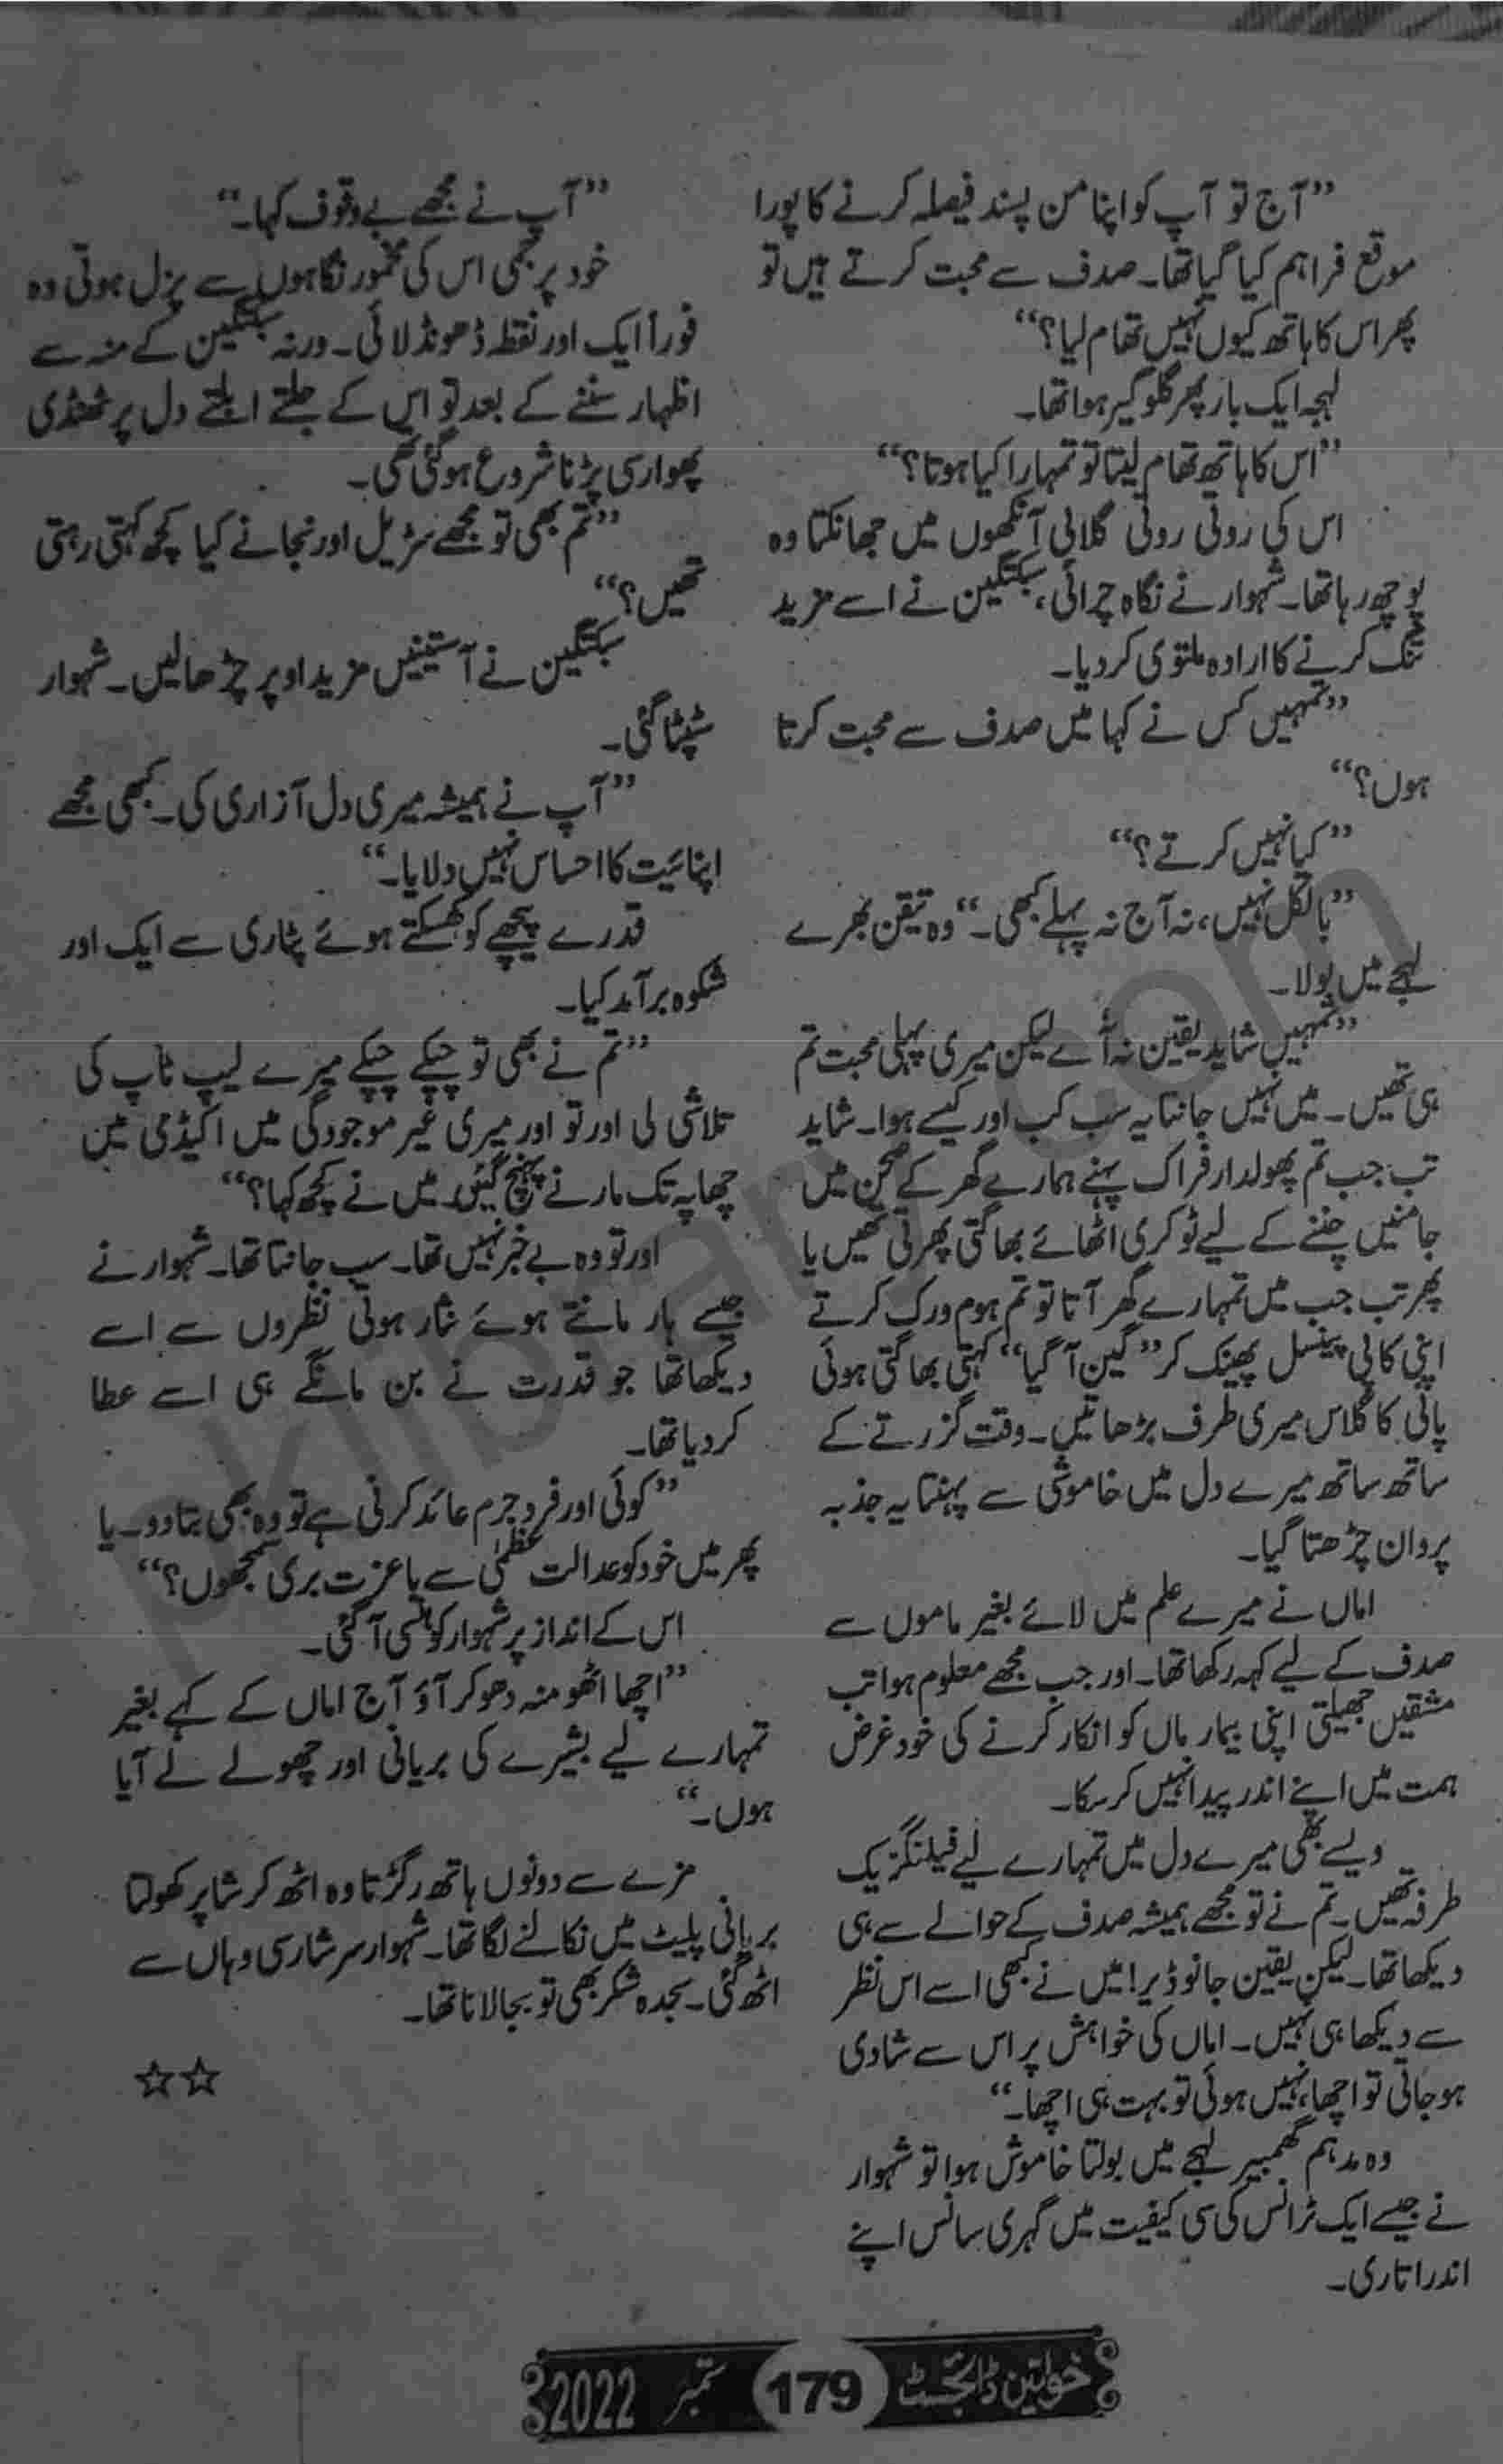 ”آج تو آپ کو اپنا من پسند فیصلہ کرنے کا پورا
موقع فراہم کیا گیا تھا۔ صدف سے محبت کرتے ہیں تو
پھر اس کا ہاتھ کیوں نہیں تھام لیا؟“
لہجہ ایک بار پھر گلوگیر ہوا تھا۔
”اس کا ہاتھ تھام لیتا تو تمہارا کیا ہوتا؟“
اس کی روئی روئی گلابی آنکھوں میں جھانکتا وہ
پوچھ رہا تھا۔ شہوار نے نگاہ چرائی، سبکتگین نے اسے مزید
تنگ کرنے کا ارادہ ملتوی کر دیا۔
”تمہیں کس نے کہا میں صدف سے محبت کرتا
ہوں؟“
”کیا نہیں کرتے؟“
”بالکل نہیں، نہ آج نہ پہلے کبھی۔“ وہ تیقن بھرے
لہجے میں بولا۔
”تمہیں شاید یقین نہ آے لیکن میری پہلی محبت تم
ہی تھیں۔ میں نہیں جانتا یہ سب کب اور کیسے ہوا۔ شاید
تب جب تم پھولدار فراک پہنے ہمارے گھر کے صحن میں
جامنیں چننے کے لیے ٹوکری اٹھائے بھاگتی پھرتی تھیں یا
پھر تب جب میں تمہارے گھر آتا تو تم ہوم ورک کرتے
اپنی کاپی پینسل پھینک کر ”گین آ گیا“ کہتی بھاگتی ہوئی
پانی کا گلاس میری طرف بڑھاتیں۔ وقت گزرتے کے
ساتھ ساتھ میرے دل میں خاموشی سے پہنتا یہ جذبہ
پروان چڑھتا گیا۔
اماں نے میرے علم میں لائے بغیر ماموں سے
صدف کے لیے کہہ رکھا تھا۔ اور جب مجھے معلوم ہوا تب
مشقیں جھیلتی اپنی بیمار ماں کو انکار کرنے کی خود غرض
ہمت میں اپنے اندر پیدا نہیں کر سکا۔
ویسے بھی میرے دل میں تمہارے لیے فیلنگز یک
طرفہ تھیں۔ تم نے تو مجھے ہمیشہ صدف کے حوالے سے ہی
دیکھا تھا۔ لیکن یقین جانو ڈیر! میں نے کبھی اسے اس نظر
سے دیکھا ہی نہیں۔ اماں کی خواہش پر اس سے شادی
ہو جاتی تو اچھا، نہیں ہوئی تو بہت ہی اچھا۔“
وہ مدہم گھمبیر لہجے میں بولتا خاموش ہوا تو شہوار
نے جیسے ایک ٹرانس کی سی کیفیت میں گہری سانس اپنے
اندر اتاری۔
”آپ نے مجھے بے وقوف کہا۔“
خود پر جمی اس کی مخمور نگاہوں سے پزل ہوتی وہ
فوراً ایک اور نقطہ ڈھونڈ لائی۔ ورنہ سبکتگین کے منہ سے
اظہار سننے کے بعد تو اس کے جلتے ابلتے دل پر ٹھنڈی
پھوار سی پڑنا شروع ہو گئی تھی۔
”تم بھی تو مجھے سڑیل اور نجانے کیا کچھ کہتی رہتی
تھیں؟“
سبکتگین نے آستینیں مزید اوپر چڑھا لیں۔ شہوار
سٹپٹا گئی۔
”آپ نے ہمیشہ میری دل آزاری کی۔ کبھی مجھے
اپنائیت کا احساس نہیں دلایا۔“
قدرے پیچھے کو کھسکتے ہوئے پٹاری سے ایک اور
شکوہ برآمد کیا۔
”تم نے بھی تو چپکے چپکے میرے لیپ ٹاپ کی
تلاشی لی اور تو اور میری غیر موجودگی میں اکیڈمی میں
چھاپہ تک مارنے پہنچ گئیں۔ میں نے کچھ کہا؟“
اور تو وہ بے خبر نہیں تھا۔ سب جانتا تھا۔ شہوار نے
جیسے ہار مانتے ہوئے نثار ہوتی نظروں سے اسے
دیکھا تھا جو قدرت نے بن مانگے ہی اسے عطا
کر دیا تھا۔
”کوئی اور فرد جرم عائد کرنی ہے تو وہ بھی بتا دو۔ یا
پھر میں خود کو عدالت عظمٰی سے باعزت بری سمجھوں؟“
اس کے انداز پر شہوار کو ہنسی آ گئی۔
”اچھا اٹھو منہ دھو کر آؤ آج اماں کے کہے بغیر
تمہارے لیے بشیرے کی بریانی اور چھولے لے آیا
ہوں۔“
مزے سے دونوں ہاتھ رگڑتا وہ اٹھ کر شاپر کھولتا
بریانی پلیٹ میں نکالنے لگا تھا۔ شہوار سرشار سی وہاں سے
اٹھ گئی۔ سجدہ شکر بھی تو بجا لانا تھا۔
☆☆
خواتین ڈائجسٹ 179 ستمبر 2022
pklibrary.com